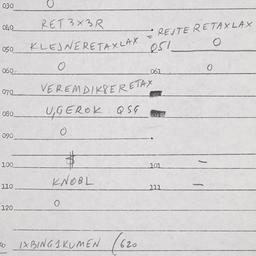 030 O
040 RET 3X3R
= REJTERETAXLAX
050 KLEJNERETAXLAX 051 O
060 O 061 O
070 VEREMDIKSERETAX
080 U,GEROK QSG
090 O
100 $ 101 –
110 KNOBL 111 —
120 O
IXBING1KUMEN /620